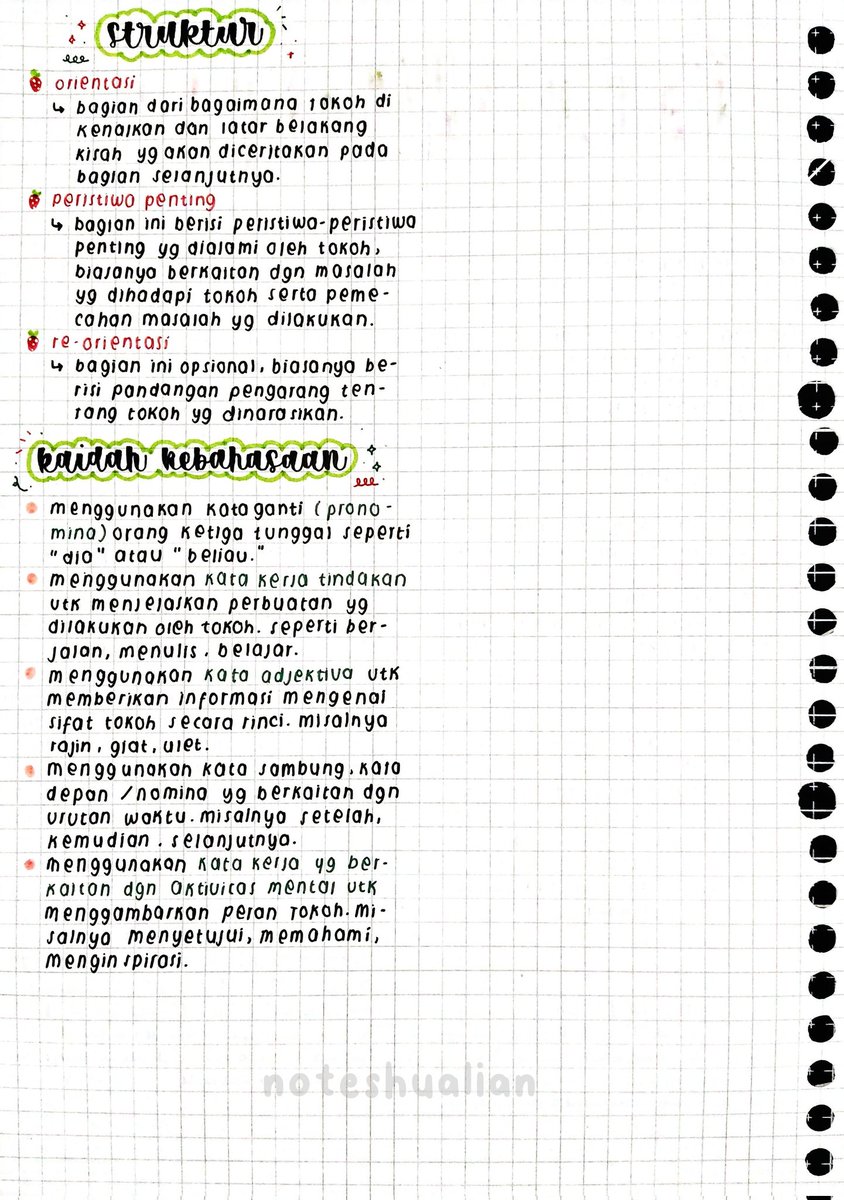 struktur
orientasi
↳ bagian dari bagaimana tokoh di
kenalkan dan latar belakang
kisah yg akan diceritakan pada
bagian selanjutnya.
peristiwa penting
↳ bagian ini berisi peristiwa-peristiwa
penting yg dialami oleh tokoh,
biasanya berkaitan dgn masalah
yg dihadapi tokoh serta peme-
cahan masalah yg dilakukan.
re-orientasi
↳ bagian ini opsional, biasanya be-
risi pandangan pengarang ten-
tang tokoh yg dinarasikan.
kaidah kebahasaan
menggunakan kata ganti (prono-
mina) orang ketiga tunggal seperti
"dia" atau "beliau."
menggunakan kata kerja tindakan
utk menjelaskan perbuatan yg
dilakukan oleh tokoh. seperti ber-
jalan, menulis, belajar.
menggunakan kata adjektiva utk
memberikan informasi mengenai
sifat tokoh secara rinci. misalnya
rajin, giat, ulet.
menggunakan kata sambung, kata
depan /nomina yg berkaitan dgn
urutan waktu. misalnya setelah,
kemudian, selanjutnya.
menggunakan kata kerja yg ber-
kaitan dgn aktivitas mental utk
menggambarkan peran tokoh. mi-
salnya menyetujui, memahami,
menginspirasi.
noteshualian